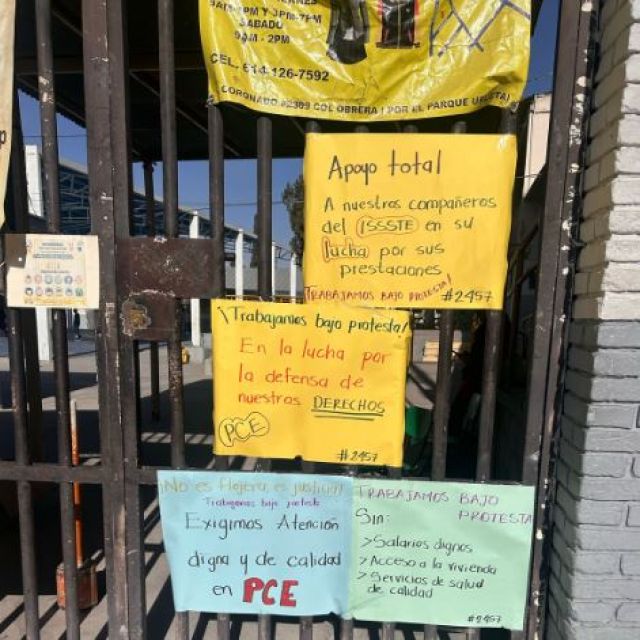 9AM-1PM Y 3PM-7PM
SABADO
9AM - 2PM
CEL. 614-126-7592
CORONADO #2309 COL OBRERA ! POR EL PARQUE
Apoyo total
A nuestros compañeros
del ISSSTE en su
lucha por sus
prestaciones
TRABAJAMOS BAJO PROTESTA!
#2457
¡Trabajamos bajo protesta!
En la lucha por
la defensa de
nuestros DERECHOS
PCE
#2457
¡No es flojera, es justicia!
Trabajamos bajo protesta
Exigimos Atención
digna y de calidad
en PCE
TRABAJAMOS BAJO
PROTESTA
Sin:
>Salarios dignos
>Acceso a la vivienda
>Servicios de salud
de calidad
#2457